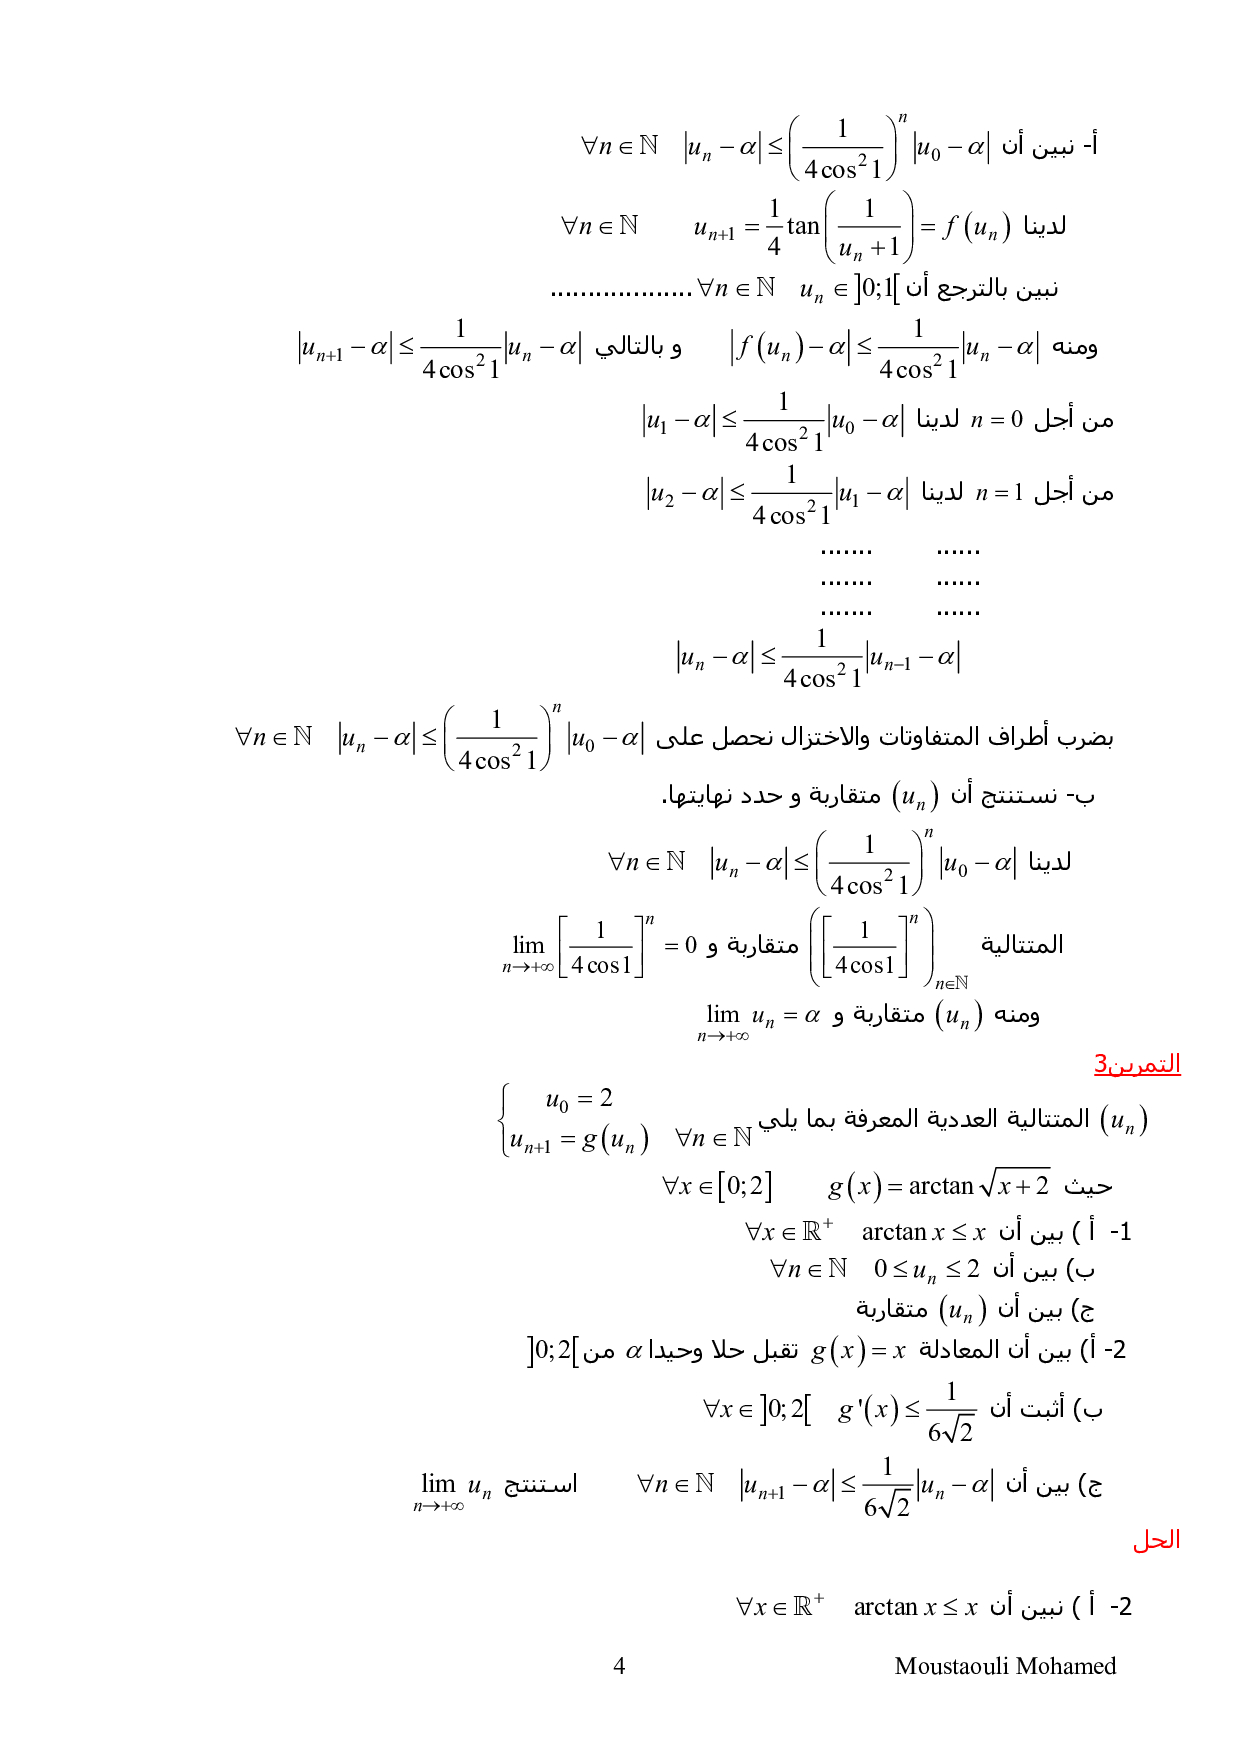 أ- نبين أن $\forall n \in \mathbb{N} \quad |u_n - \alpha| \leq \left(\frac{1}{4\cos^2 1}\right)^n |u_0 - \alpha|$
لدينا $\forall n \in \mathbb{N} \quad u_{n+1} = \frac{1}{4}\tan\left(\frac{1}{u_n + 1}\right) = f(u_n)$
نبين بالترجع أن $\forall n \in \mathbb{N} \quad u_n \in ]0;1[$ ...................
ومنه $|f(u_n) - \alpha| \leq \frac{1}{4\cos^2 1}|u_n - \alpha|$ و بالتالي $|u_{n+1} - \alpha| \leq \frac{1}{4\cos^2 1}|u_n - \alpha|$
من أجل $n = 0$ لدينا $|u_1 - \alpha| \leq \frac{1}{4\cos^2 1}|u_0 - \alpha|$
من أجل $n = 1$ لدينا $|u_2 - \alpha| \leq \frac{1}{4\cos^2 1}|u_1 - \alpha|$
...... .......
...... .......
...... .......
$|u_n - \alpha| \leq \frac{1}{4\cos^2 1}|u_{n-1} - \alpha|$
بضرب أطراف المتفاوتات والاختزال نحصل على $\forall n \in \mathbb{N} \quad |u_n - \alpha| \leq \left(\frac{1}{4\cos^2 1}\right)^n |u_0 - \alpha|$
ب- نستنتج أن $(u_n)$ متقاربة و حدد نهايتها.
لدينا $\forall n \in \mathbb{N} \quad |u_n - \alpha| \leq \left(\frac{1}{4\cos^2 1}\right)^n |u_0 - \alpha|$
المتتالية $\left(\left[\frac{1}{4\cos 1}\right]^n\right)_{n \in \mathbb{N}}$ متقاربة و $\lim_{n \to +\infty}\left[\frac{1}{4\cos 1}\right]^n = 0$
ومنه $(u_n)$ متقاربة و $\lim_{n \to +\infty} u_n = \alpha$
التمرين3
$(u_n)$ المتتالية العددية المعرفة بما يلي $\begin{cases} u_0 = 2 \\ u_{n+1} = g(u_n) \quad \forall n \in \mathbb{N} \end{cases}$
حيث $\forall x \in [0;2] \quad g(x) = \arctan\sqrt{x+2}$
1- أ ) بين أن $\forall x \in \mathbb{R}^+ \quad \arctan x \leq x$
ب) بين أن $\forall n \in \mathbb{N} \quad 0 \leq u_n \leq 2$
ج) بين أن $(u_n)$ متقاربة
2- أ) بين أن المعادلة $g(x) = x$ تقبل حلا وحيدا $\alpha$ من $]0;2[$
ب) أثبت أن $\forall x \in ]0;2[ \quad g'(x) \leq \frac{1}{6\sqrt{2}}$
ج) بين أن $\forall n \in \mathbb{N} \quad |u_{n+1} - \alpha| \leq \frac{1}{6\sqrt{2}}|u_n - \alpha|$ استنتج $\lim_{n \to +\infty} u_n$
الحل
2- أ ) نبين أن $\forall x \in \mathbb{R}^+ \quad \arctan x \leq x$
4 Moustaouli Mohamed